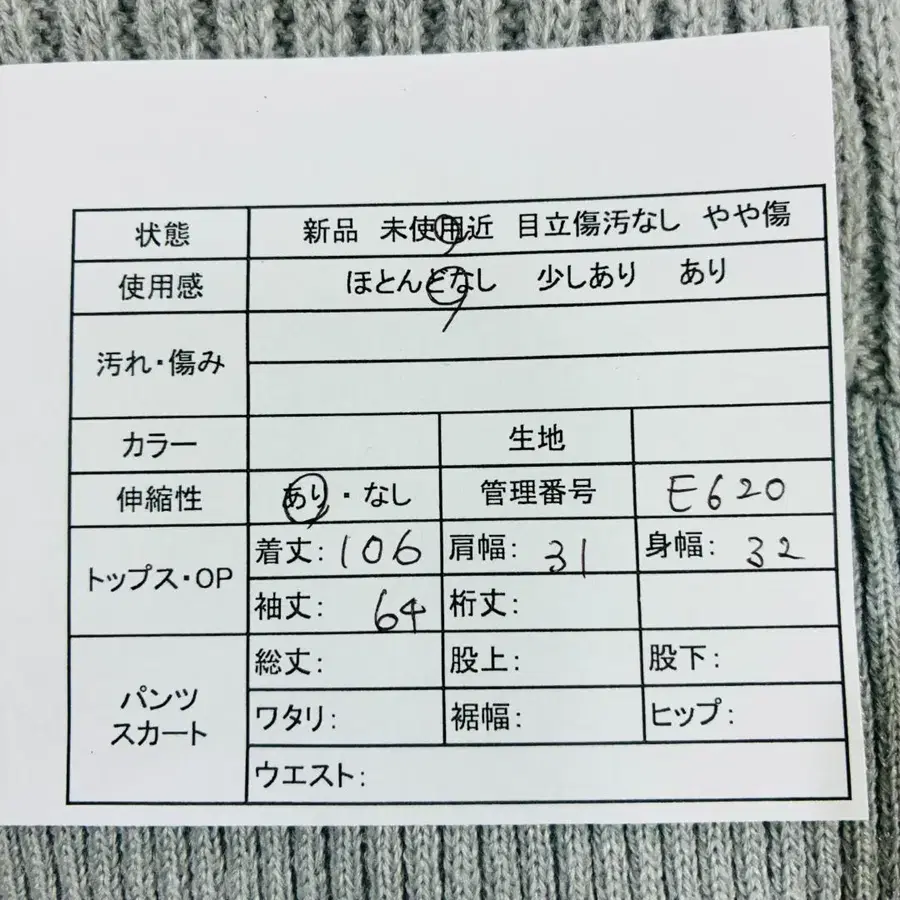 状態 新品 未使用近 目立傷汚なし やや傷
使用感 ほとんどなし 少しあり あり
汚れ・傷み
カラー 生地
伸縮性 あり・なし 管理番号 E620
トップス・OP 着丈: 106 肩幅: 31 身幅: 32
袖丈: 64 裄丈:
パンツ
スカート
総丈: 股上: 股下:
ワタリ: 裾幅: ヒップ:
ウエスト: